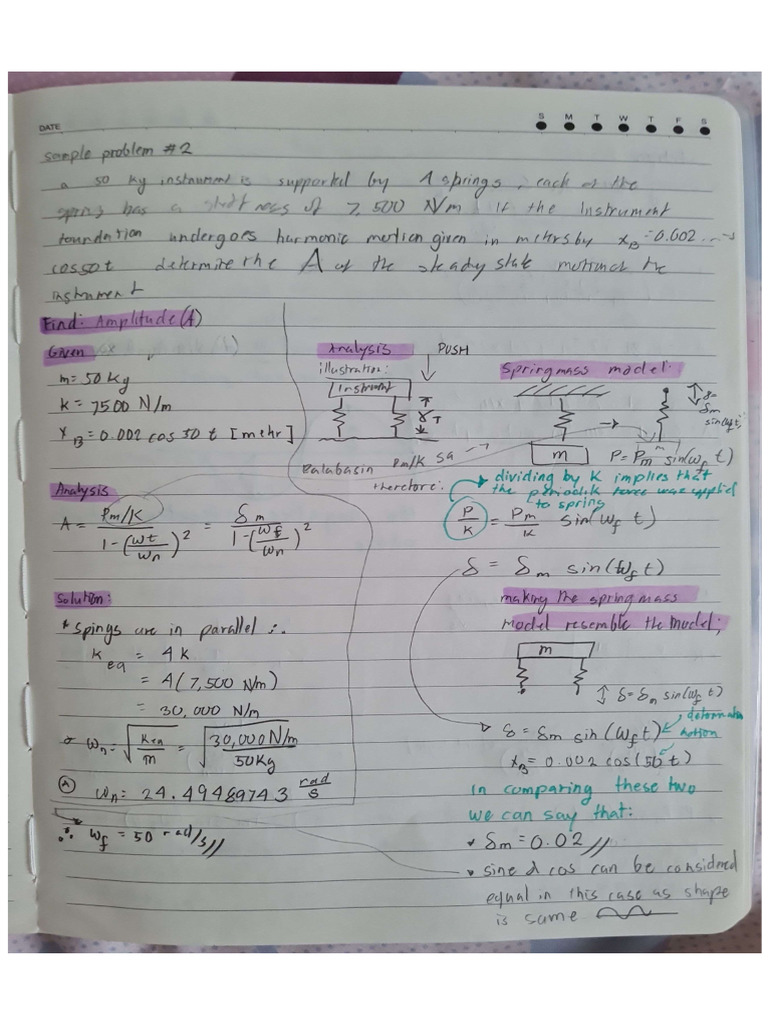 DATE
S M T W T F S
Sample problem #2
a 50 kg instrument is supported by 4 springs, each of the
spring has a stiffness of 7,500 N/m If the Instrument
foundation undergoes harmonic motion given in meters by x_B = 0.002 ...→
cos50t determine the A of the steady state motion of the
instrument
Find: Amplitude (A)
Given
m = 50 kg
k = 7500 N/m
x_B = 0.002 cos 50 t [meter]
Analysis
A = (Pm/K)/(1-(ωf/ωn)²) = δm/(1-(ωf/ωn)²)
Solution:
* Spings are in parallel ∴
k_eq = 4k
= 4(7,500 N/m)
= 30,000 N/m
ωn = √(keq/m) = √(30,000 N/m / 50kg)
Ⓐ ωn = 24.49489743 rad/s
∴ ωf = 50 rad/s //
Analysis
PUSH
illustration:
Instrument
Balabasin Pm/K sa
therefore:
Spring mass model:
δ = δm sin(ωf t)
m
P = Pm sin(ωf t)
dividing by K implies that
the periodic force was applied
to spring
P/K = Pm/K sin(ωf t)
δ = δm sin(ωf t)
making the spring mass
model resemble the model;
m
δ = δm sin(ωf t)
δ = δm sin(ωf t)
motion
x_B = 0.002 cos(50 t)
In comparing these two
we can say that:
• δm = 0.02 //
• sine & cos can be considered
equal in this case as shape
is same